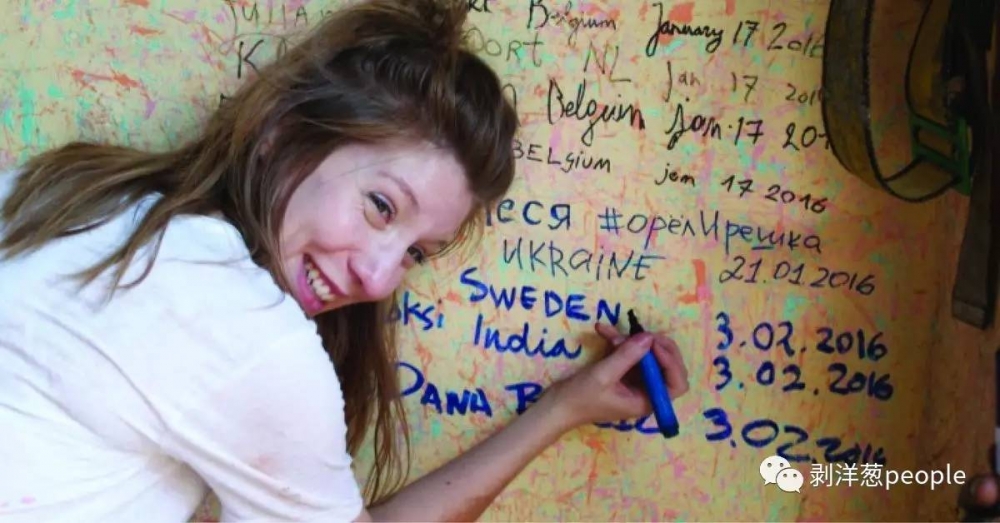 Belgium January 17 2016
NL Jan 17 2016
Belgium Jan·17 201
BELgium jan 17 2016
#орёлИрешка
UKRAiNE 21.01.2016
SWEDEN 3.02.2016
India 3.02.2016
DANA 3.02.2016
剥洋葱people